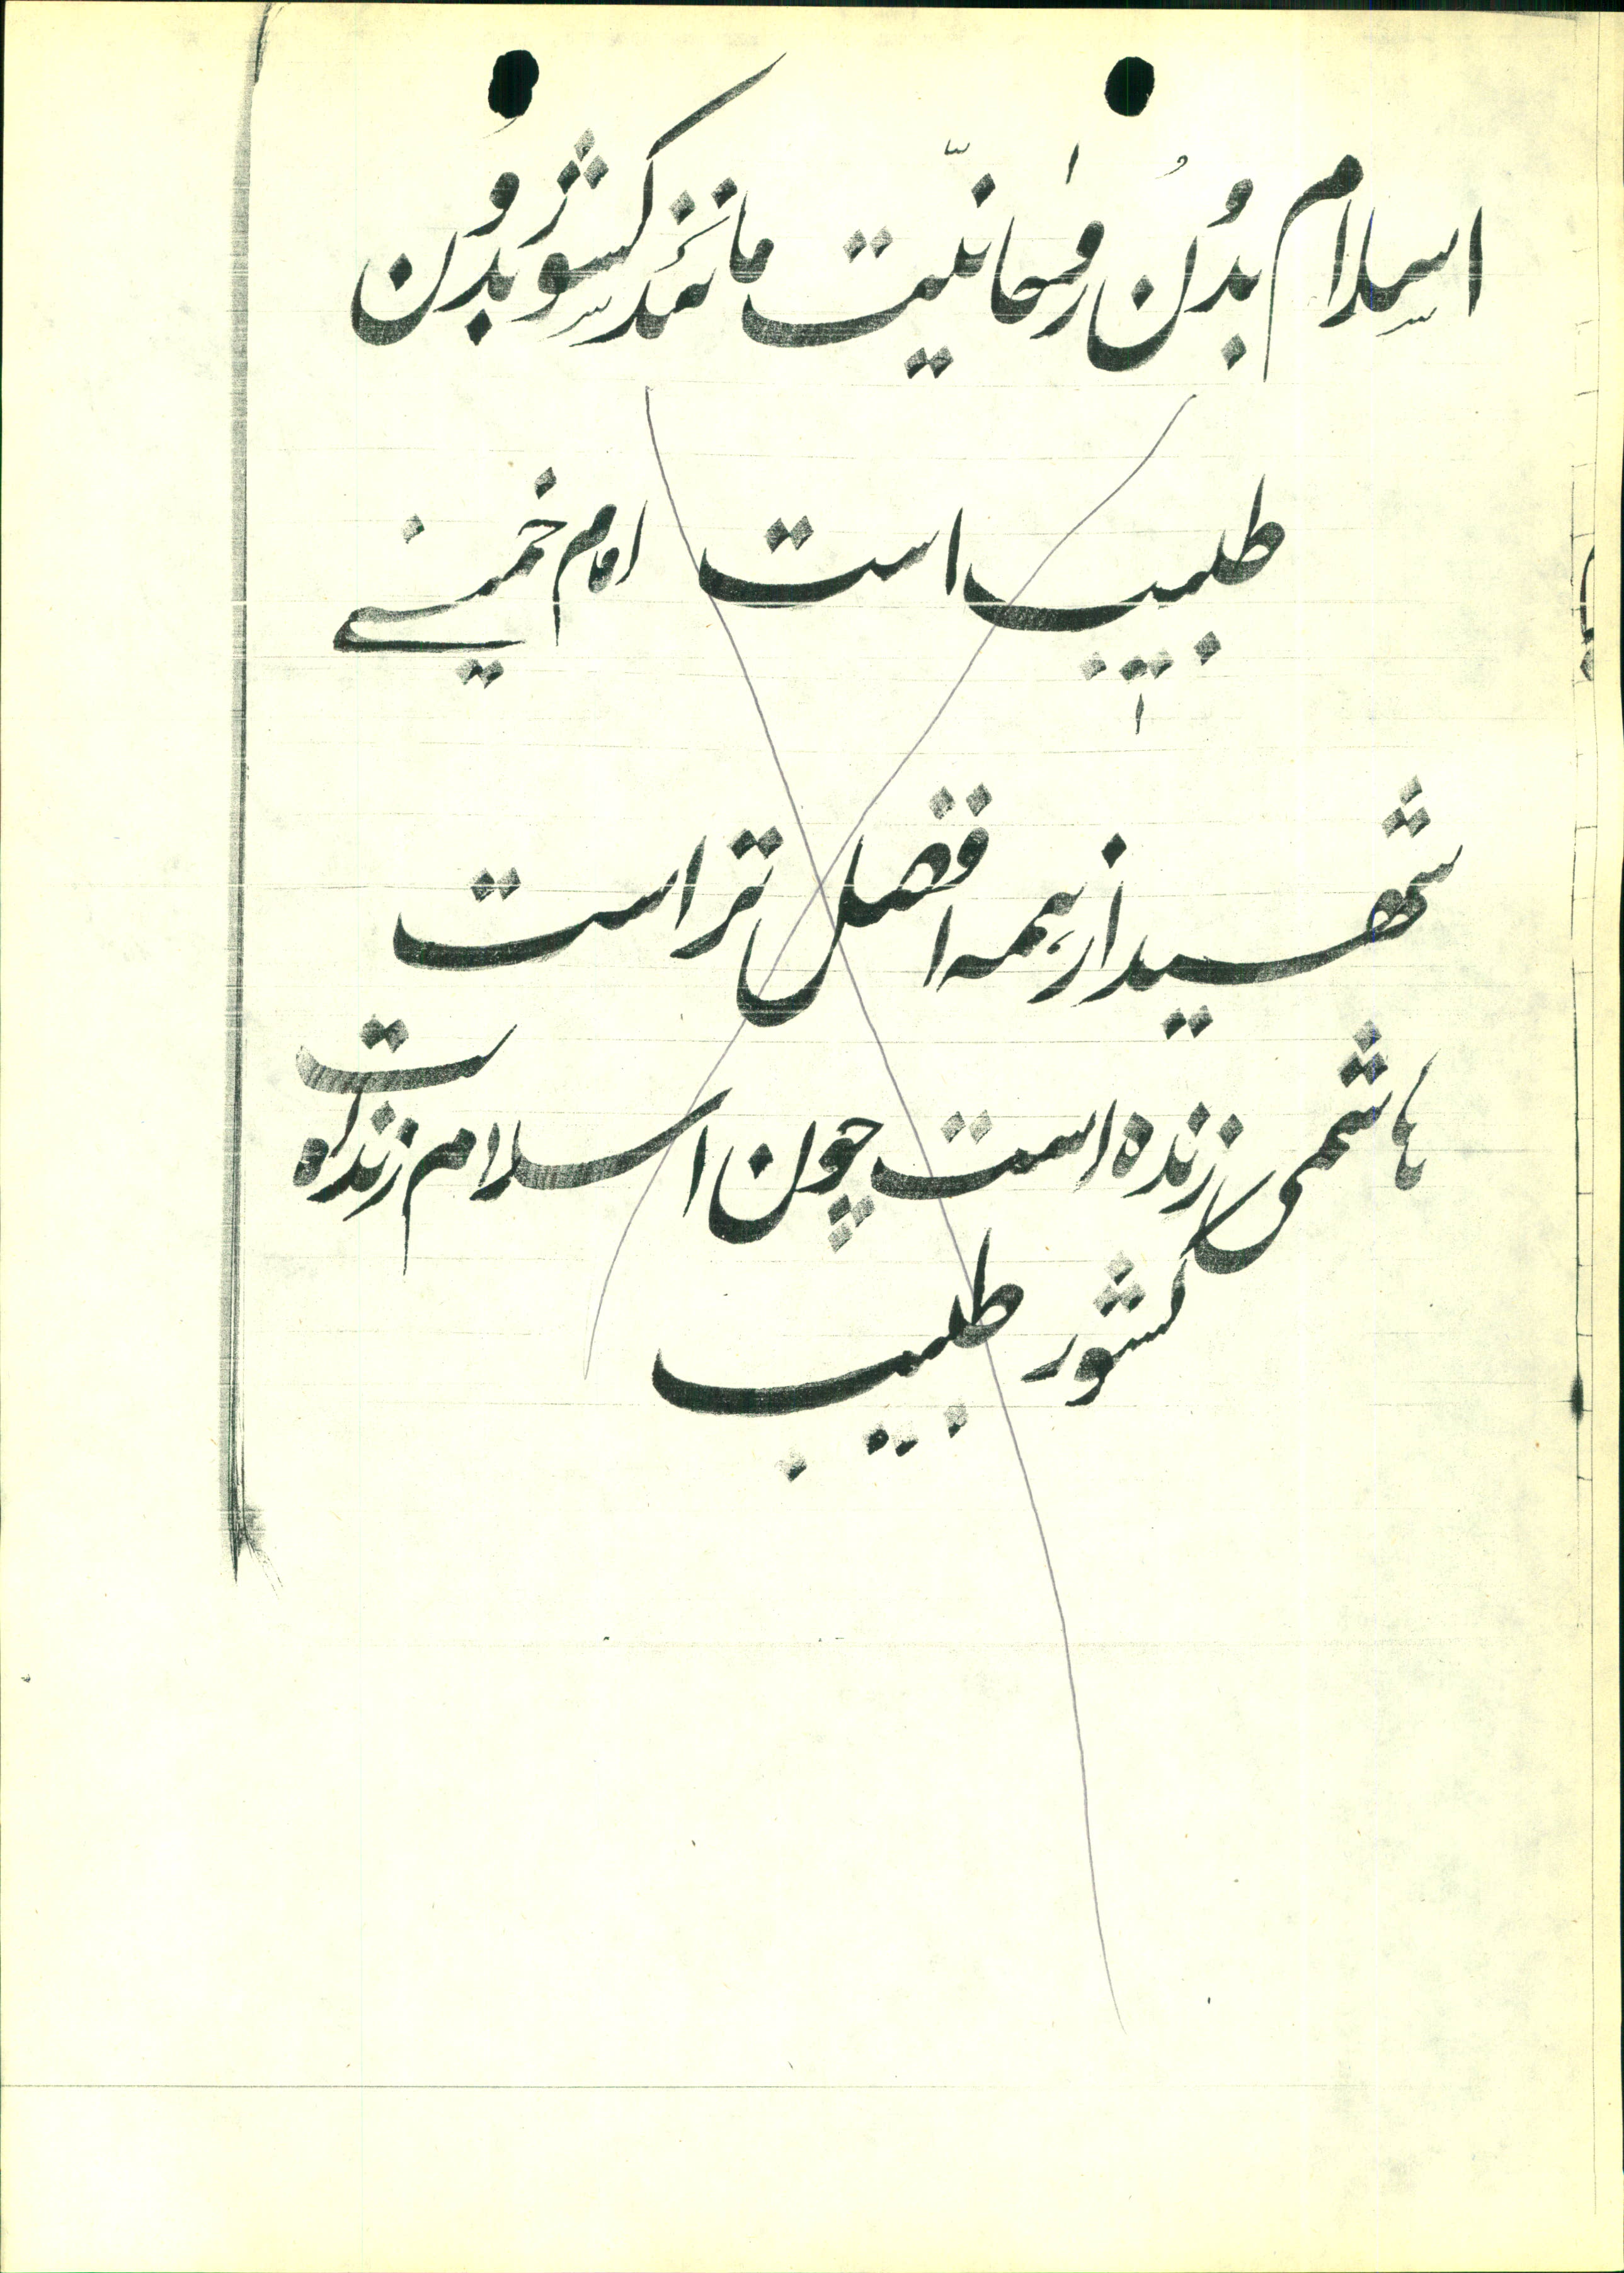 اسلام بدُون روحانیّت مانند کشور بدُون
طبیب است امام خمینی
شهید از همه افضل تر است
هاشمی زنده است چون اسلام زنده است
کشور طبیب